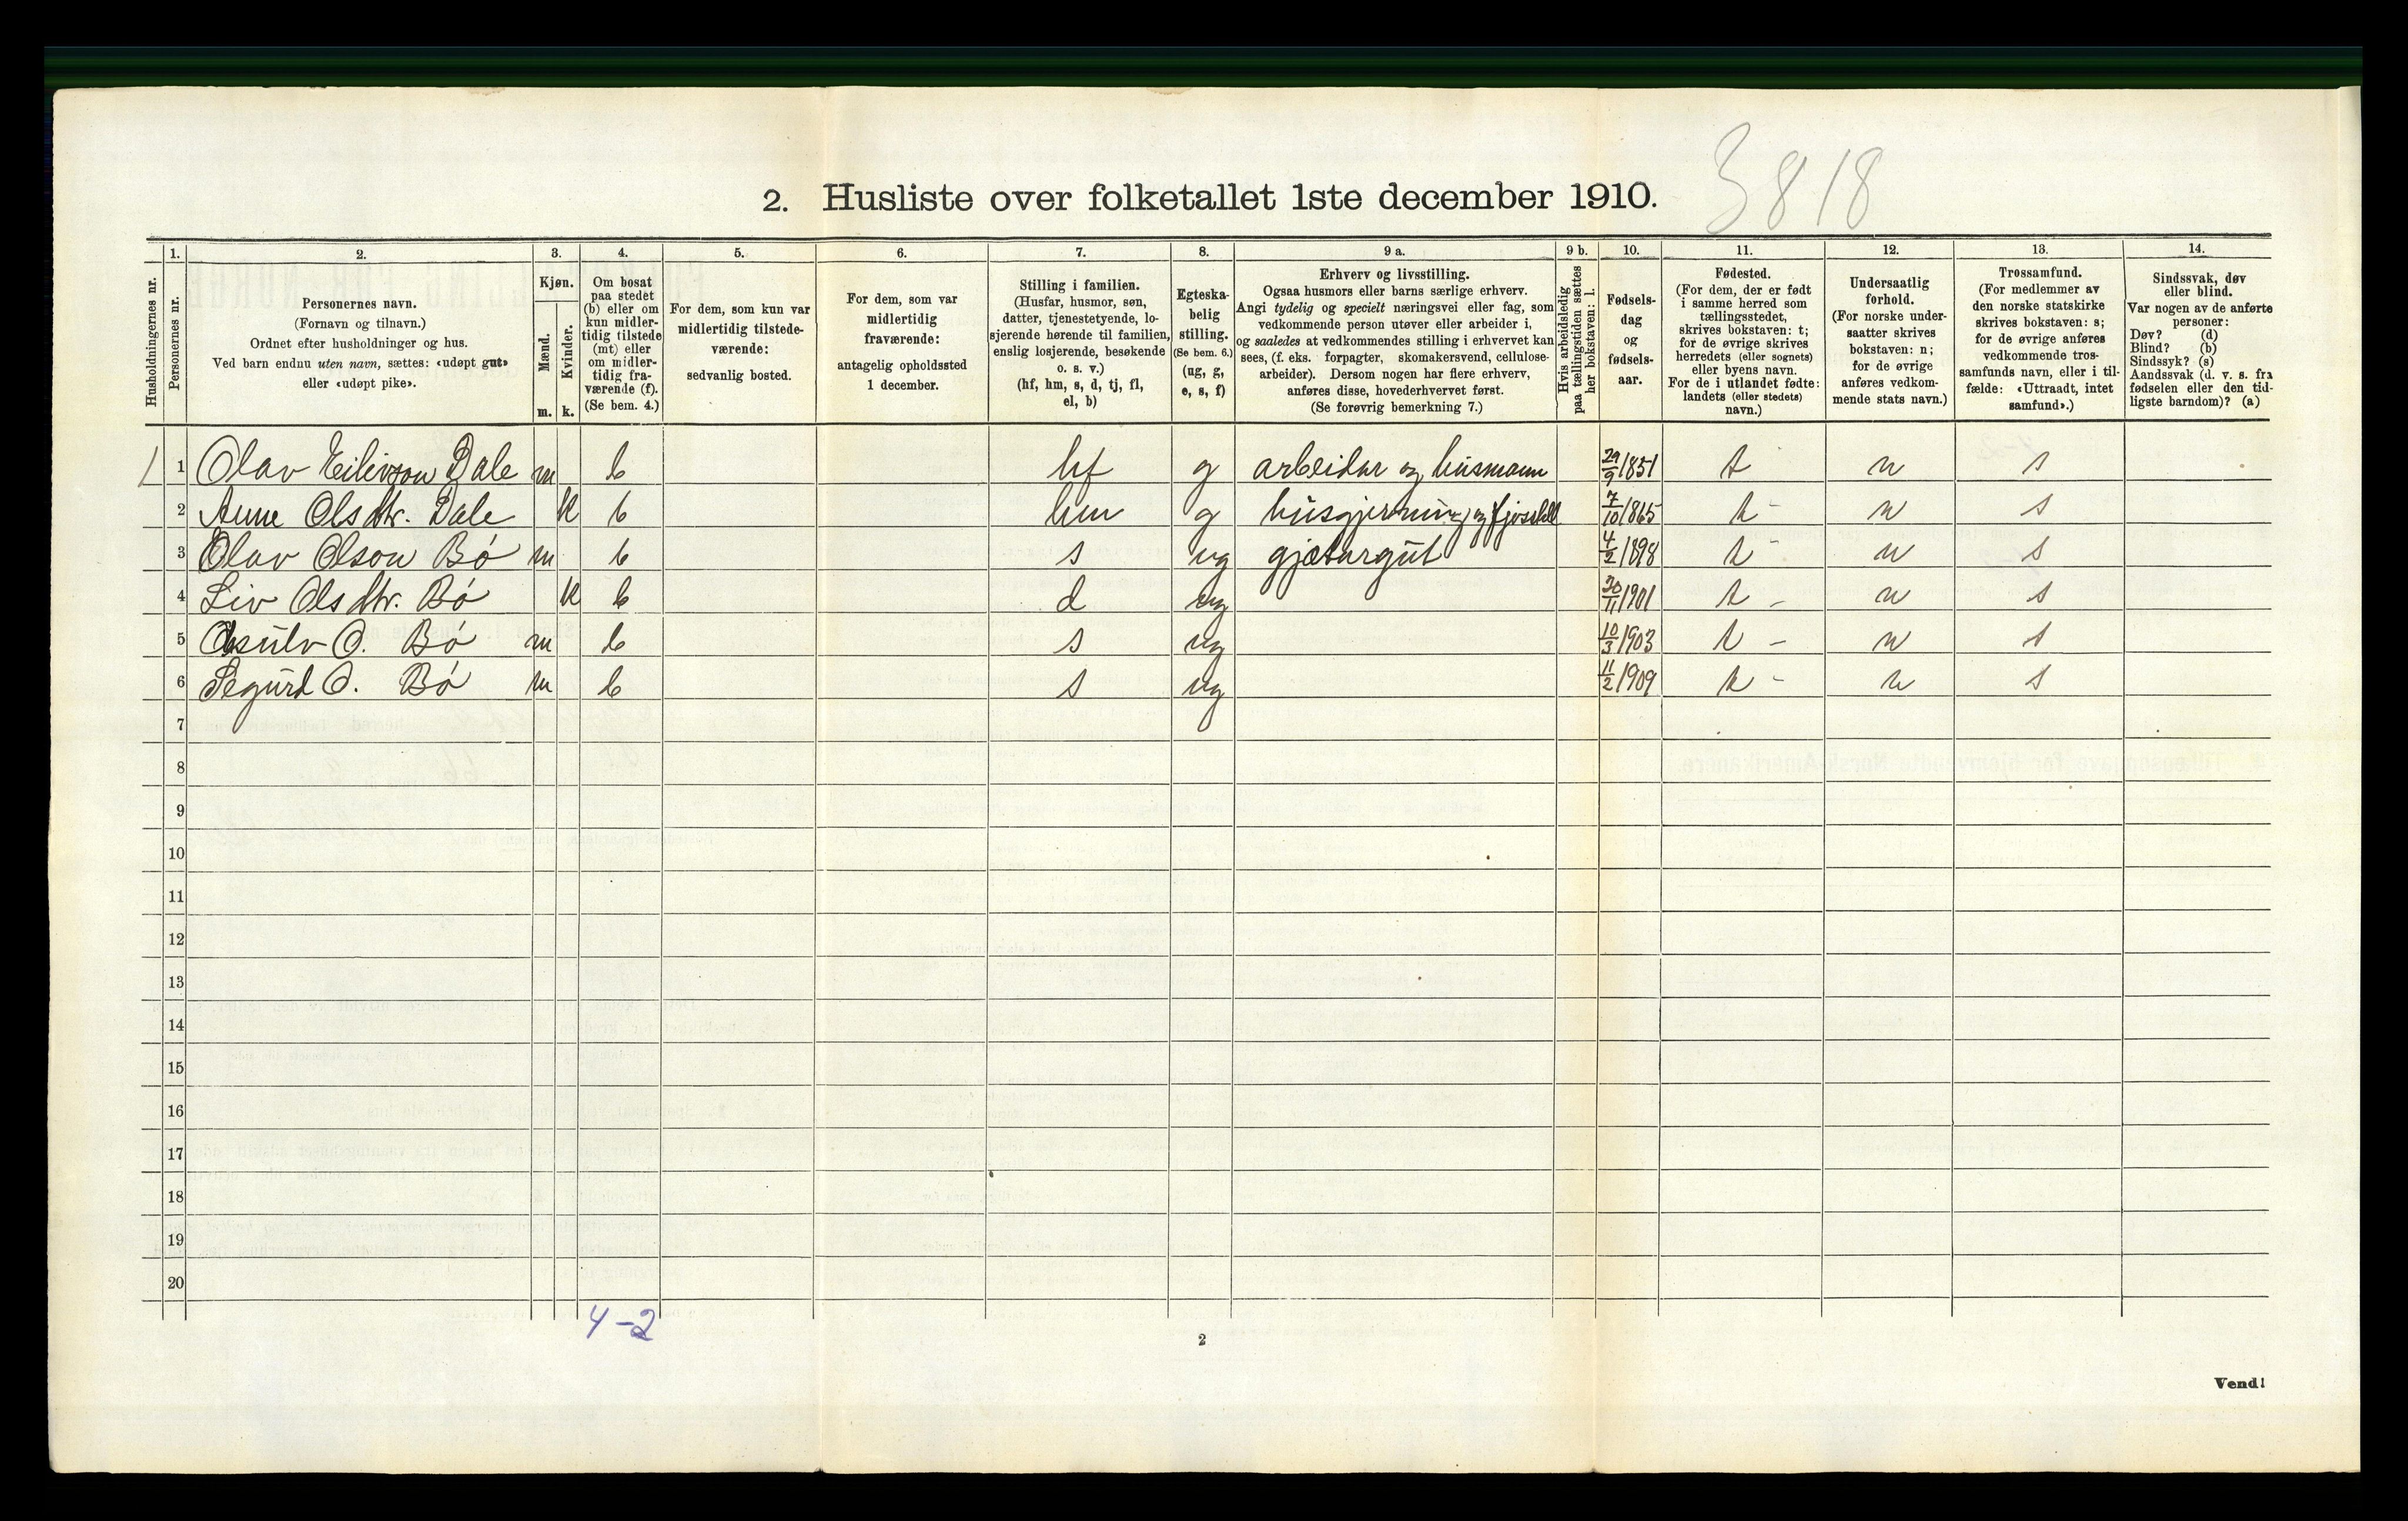 3818
2. Husliste over folketallet 1ste december 1910.
Husholdningernes nr.
1.
Personernes nr.
2.
Personernes navn.
(Fornavn og tilnavn.)
Ordnet efter husholdninger og hus.
Ved barn endnu uten navn, sættes: «udøpt gut»
eller «udøpt pike».
3.
Kjøn.
Mænd.
m.
Kvinder.
k.
4.
Om bosat
paa stedet
(b) eller om
kun midler-
tidig tilstede
(mt) eller
om midler-
tidig fra-
værende (f).
(Se bem. 4.)
5.
For dem, som kun var
midlertidig tilstede-
værende:
sedvanlig bosted.
6.
For dem, som var
midlertidig
fraværende:
antagelig opholdssted
1 december.
7.
Stilling i familien.
(Husfar, husmor, søn,
datter, tjenestetyende, lo-
sjerende hørende til familien,
enslig losjerende, besøkende
o. s. v.)
(hf, hm, s, d, tj, fl,
el, b)
8.
Egteska-
belig
stilling.
(Se bem. 6.)
(ug, g,
e, s, f)
9 a.
Erhverv og livsstilling.
Ogsaa husmors eller barns særlige erhverv.
Angi tydelig og specielt næringsvei eller fag, som
vedkommende person utøver eller arbeider i,
og saaledes at vedkommendes stilling i erhvervet kan
sees, (f. eks. forpagter, skomakersvend, cellulose-
arbeider). Dersom nogen har flere erhverv,
anføres disse, hovederhvervet først.
(Se forøvrig bemerkning 7.)
9 b.
Hvis arbeidsledig
paa tællingstiden sættes
her bokstaven: l.
10.
Fødsels-
dag
og
fødsels-
aar.
11.
Fødested.
(For dem, der er født
i samme herred som
tællingsstedet,
skrives bokstaven: t;
for de øvrige skrives
herredets (eller sognets)
eller byens navn.
For de i utlandet fødte:
landets (eller stedets)
navn.)
12.
Undersaatlig
forhold.
(For norske under-
saatter skrives
bokstaven: n;
for de øvrige
anføres vedkom-
mende stats navn.)
13.
Trossamfund.
(For medlemmer av
den norske statskirke
skrives bokstaven: s;
for de øvrige anføres
vedkommende tros-
samfunds navn, eller i til-
fælde: «Uttraadt, intet
samfund».)
14.
Sindssvak, døv
eller blind.
Var nogen av de anførte
personer:
Døv? (d)
Blind? (b)
Sindssyk? (s)
Aandssvak (d. v. s. fra
fødselen eller den tid-
ligste barndom)? (a)
1 1 Olav Eilivson Dale m b hf g arbeidar og husmann 29/9 1851 t n s
2 Anne Olsdtr. Dale k b hm g husgjerning og fjosstell 7/10 1865 t - n s
3 Olav Olson Bø m b s ug gjætargut 4/2 1898 t - n s
4 Liv Olsdtr. Bø k b d ug 30/11 1901 t - n s
5 Asulv O. Bø m b s ug 10/3 1903 t - n s
6 Segurd O. Bø m b s ug 11/2 1909 t - n s
7
8
9
10
11
12
13
14
15
16
17
18
19
20
4-2
2
Vend!